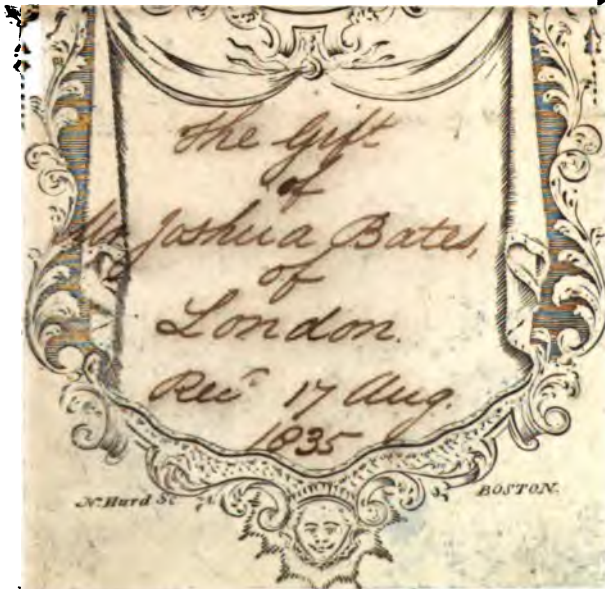 The Gift
of
Mr Joshua Bates,
of
London.
Recd 17 Aug.
1835
N. Hurd Sc
BOSTON.